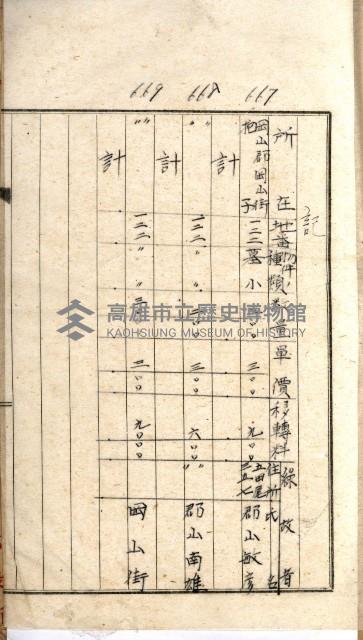 667 668 669
記
所在 地番 種類 數量 單價 移轉料 緣故者
住所氏名
岡山郡岡山街
子 一二二 墓 小 三〇〇 九〇〇 五甲尾 三五七 郡山敏彦
計
〃 一二二 〃 〃 二 三〇〇 六〇〇 〃 郡山南雄
計
〃 一二二 〃 〃 三 三〇〇 九〇〇 岡山街
計
高雄市立歷史博物館
KAOHSIUNG MUSEUM OF HISTORY